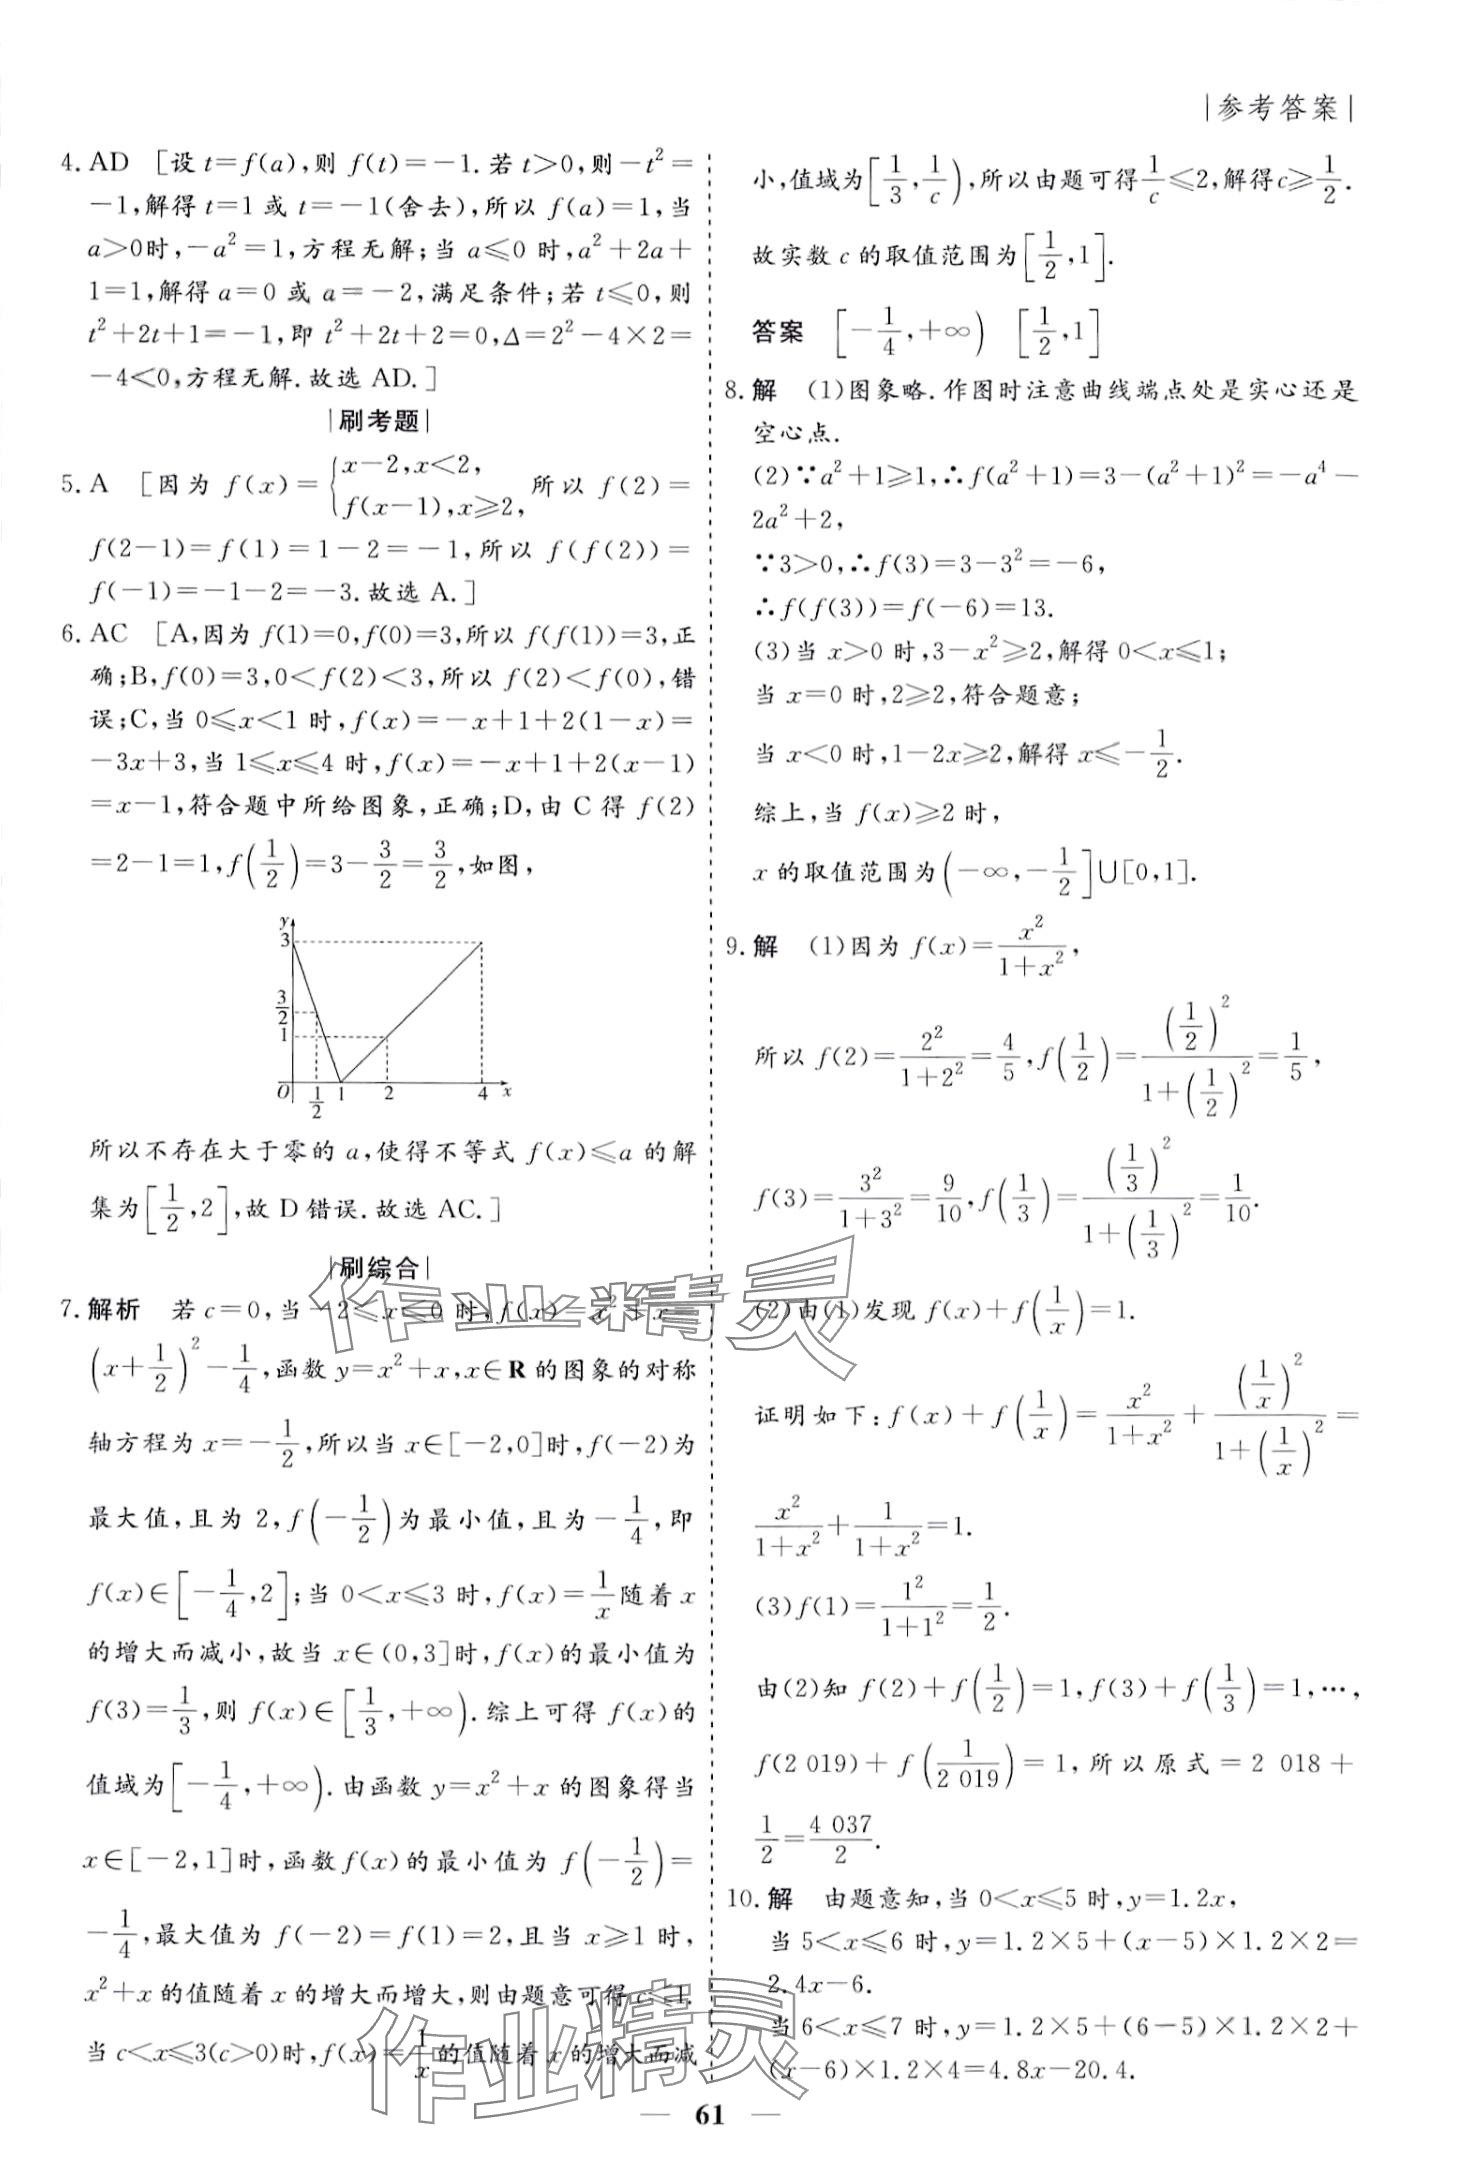 |参考答案|
4. AD [设 t=f(a),则 f(t)=-1.若 t>0,则-t²=
-1,解得 t=1 或 t=-1(舍去),所以 f(a)=1,当
a>0时,-a²=1,方程无解;当 a≤0 时,a²+2a+
1=1,解得 a=0 或 a=-2,满足条件;若 t≤0,则
t²+2t+1=-1,即 t²+2t+2=0,Δ=2²-4×2=
-4<0,方程无解.故选 AD.]
|刷考题|
5. A [因为 f(x)={x-2,x<2, f(x-1),x≥2, 所以 f(2)=
f(2-1)=f(1)=1-2=-1,所以 f(f(2))=
f(-1)=-1-2=-3.故选 A.]
6. AC [A,因为 f(1)=0,f(0)=3,所以 f(f(1))=3,正
确;B,f(0)=3,0<f(2)<3,所以 f(2)<f(0),错
误;C,当 0≤x<1 时,f(x)=-x+1+2(1-x)=
-3x+3,当 1≤x≤4 时,f(x)=-x+1+2(x-1)
=x-1,符合题中所给图象,正确;D,由 C 得 f(2)
=2-1=1,f(1/2)=3-3/2=3/2,如图,
y
3
3/2
1
O 1/2 1 2 4 x
所以不存在大于零的 a,使得不等式 f(x)≤a 的解
集为[1/2,2],故 D 错误.故选 AC.]
|刷综合|
7. 解析 若 c=0,当-2≤x≤0 时,f(x)=x²+x=
(x+1/2)²-1/4,函数 y=x²+x,x∈R 的图象的对称
轴方程为 x=-1/2,所以当 x∈[-2,0]时,f(-2)为
最大值,且为 2,f(-1/2)为最小值,且为-1/4,即
f(x)∈[-1/4,2];当 0<x≤3 时,f(x)=1/x随着 x
的增大而减小,故当 x∈(0,3]时,f(x)的最小值为
f(3)=1/3,则 f(x)∈[1/3,+∞).综上可得 f(x)的
值域为[-1/4,+∞).由函数 y=x²+x 的图象得当
x∈[-2,1]时,函数 f(x)的最小值为 f(-1/2)=
-1/4,最大值为 f(-2)=f(1)=2,且当 x≥1 时,
x²+x 的值随着 x 的增大而增大,则由题意可得 c≤1.
当 c<x≤3(c>0)时,f(x)=1/x的值随着 x 的增大而减
小,值域为[1/3,1/c),所以由题可得1/c≤2,解得c≥1/2.
故实数 c 的取值范围为[1/2,1].
答案 [-1/4,+∞) [1/2,1]
8. 解 (1)图象略.作图时注意曲线端点处是实心还是
空心点.
(2)∵a²+1≥1,∴f(a²+1)=3-(a²+1)²=-a⁴-
2a²+2,
∵3>0,∴f(3)=3-3²=-6,
∴f(f(3))=f(-6)=13.
(3)当 x>0 时,3-x²≥2,解得 0<x≤1;
当 x=0 时,2≥2,符合题意;
当 x<0 时,1-2x≥2,解得 x≤-1/2.
综上,当 f(x)≥2 时,
x 的取值范围为(-∞,-1/2]∪[0,1].
9. 解 (1)因为 f(x)=x²/(1+x²),
所以 f(2)=2²/(1+2²)=4/5,f(1/2)=(1/2)²/(1+(1/2)²)=1/5,
f(3)=3²/(1+3²)=9/10,f(1/3)=(1/3)²/(1+(1/3)²)=1/10.
(2)由(1)发现 f(x)+f(1/x)=1.
证明如下:f(x)+f(1/x)=x²/(1+x²)+(1/x)²/(1+(1/x)²)=
x²/(1+x²)+1/(1+x²)=1.
(3)f(1)=1²/(1+1²)=1/2.
由(2)知 f(2)+f(1/2)=1,f(3)+f(1/3)=1,…,
f(2 019)+f(1/2 019)=1,所以原式=2 018+
1/2=4 037/2.
10. 解 由题意知,当 0<x≤5 时,y=1.2x,
当 5<x≤6 时,y=1.2×5+(x-5)×1.2×2=
2.4x-6.
当 6<x≤7 时,y=1.2×5+(6-5)×1.2×2+
(x-6)×1.2×4=4.8x-20.4.
作业精灵
作业精灵
— 61 —